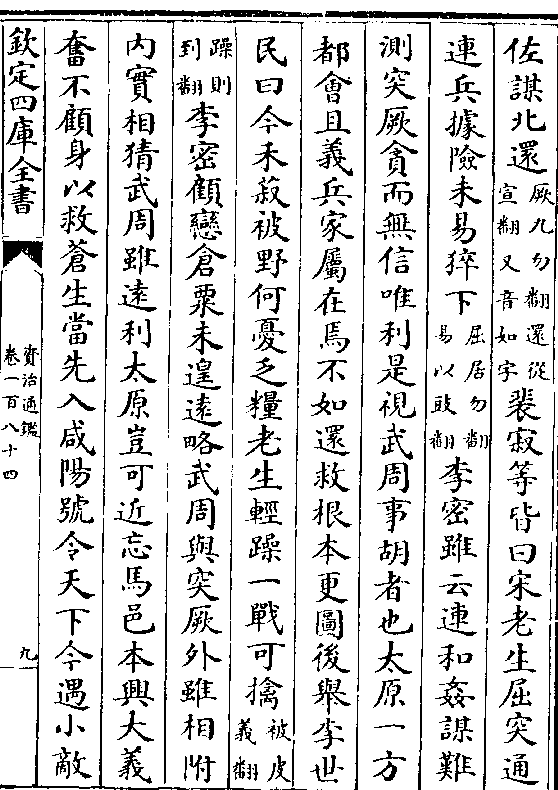 佐謀北還厥九勿翻還從宣翻又音如字裴寂等皆曰宋老生屈突通
連兵據險未易猝下屈居勿翻易以豉翻李密雖云連和姦謀難
測突厥貪而無信唯利是視武周事胡者也太原一方
都會且義兵家屬在焉不如還救根本更圖後舉李世
民曰今禾菽被野何憂乏糧老生輕躁一戰可擒被皮義翻
躁則到翻李密顧戀倉粟未遑遠略武周與突厥外雖相附
内實相猜武周雖遠利太原豈可近忘馬邑本興大義
奮不顧身以救蒼生當先入咸陽號令天下今遇小敵
欽定四庫全書
資治通鑑
卷一百八十四
九